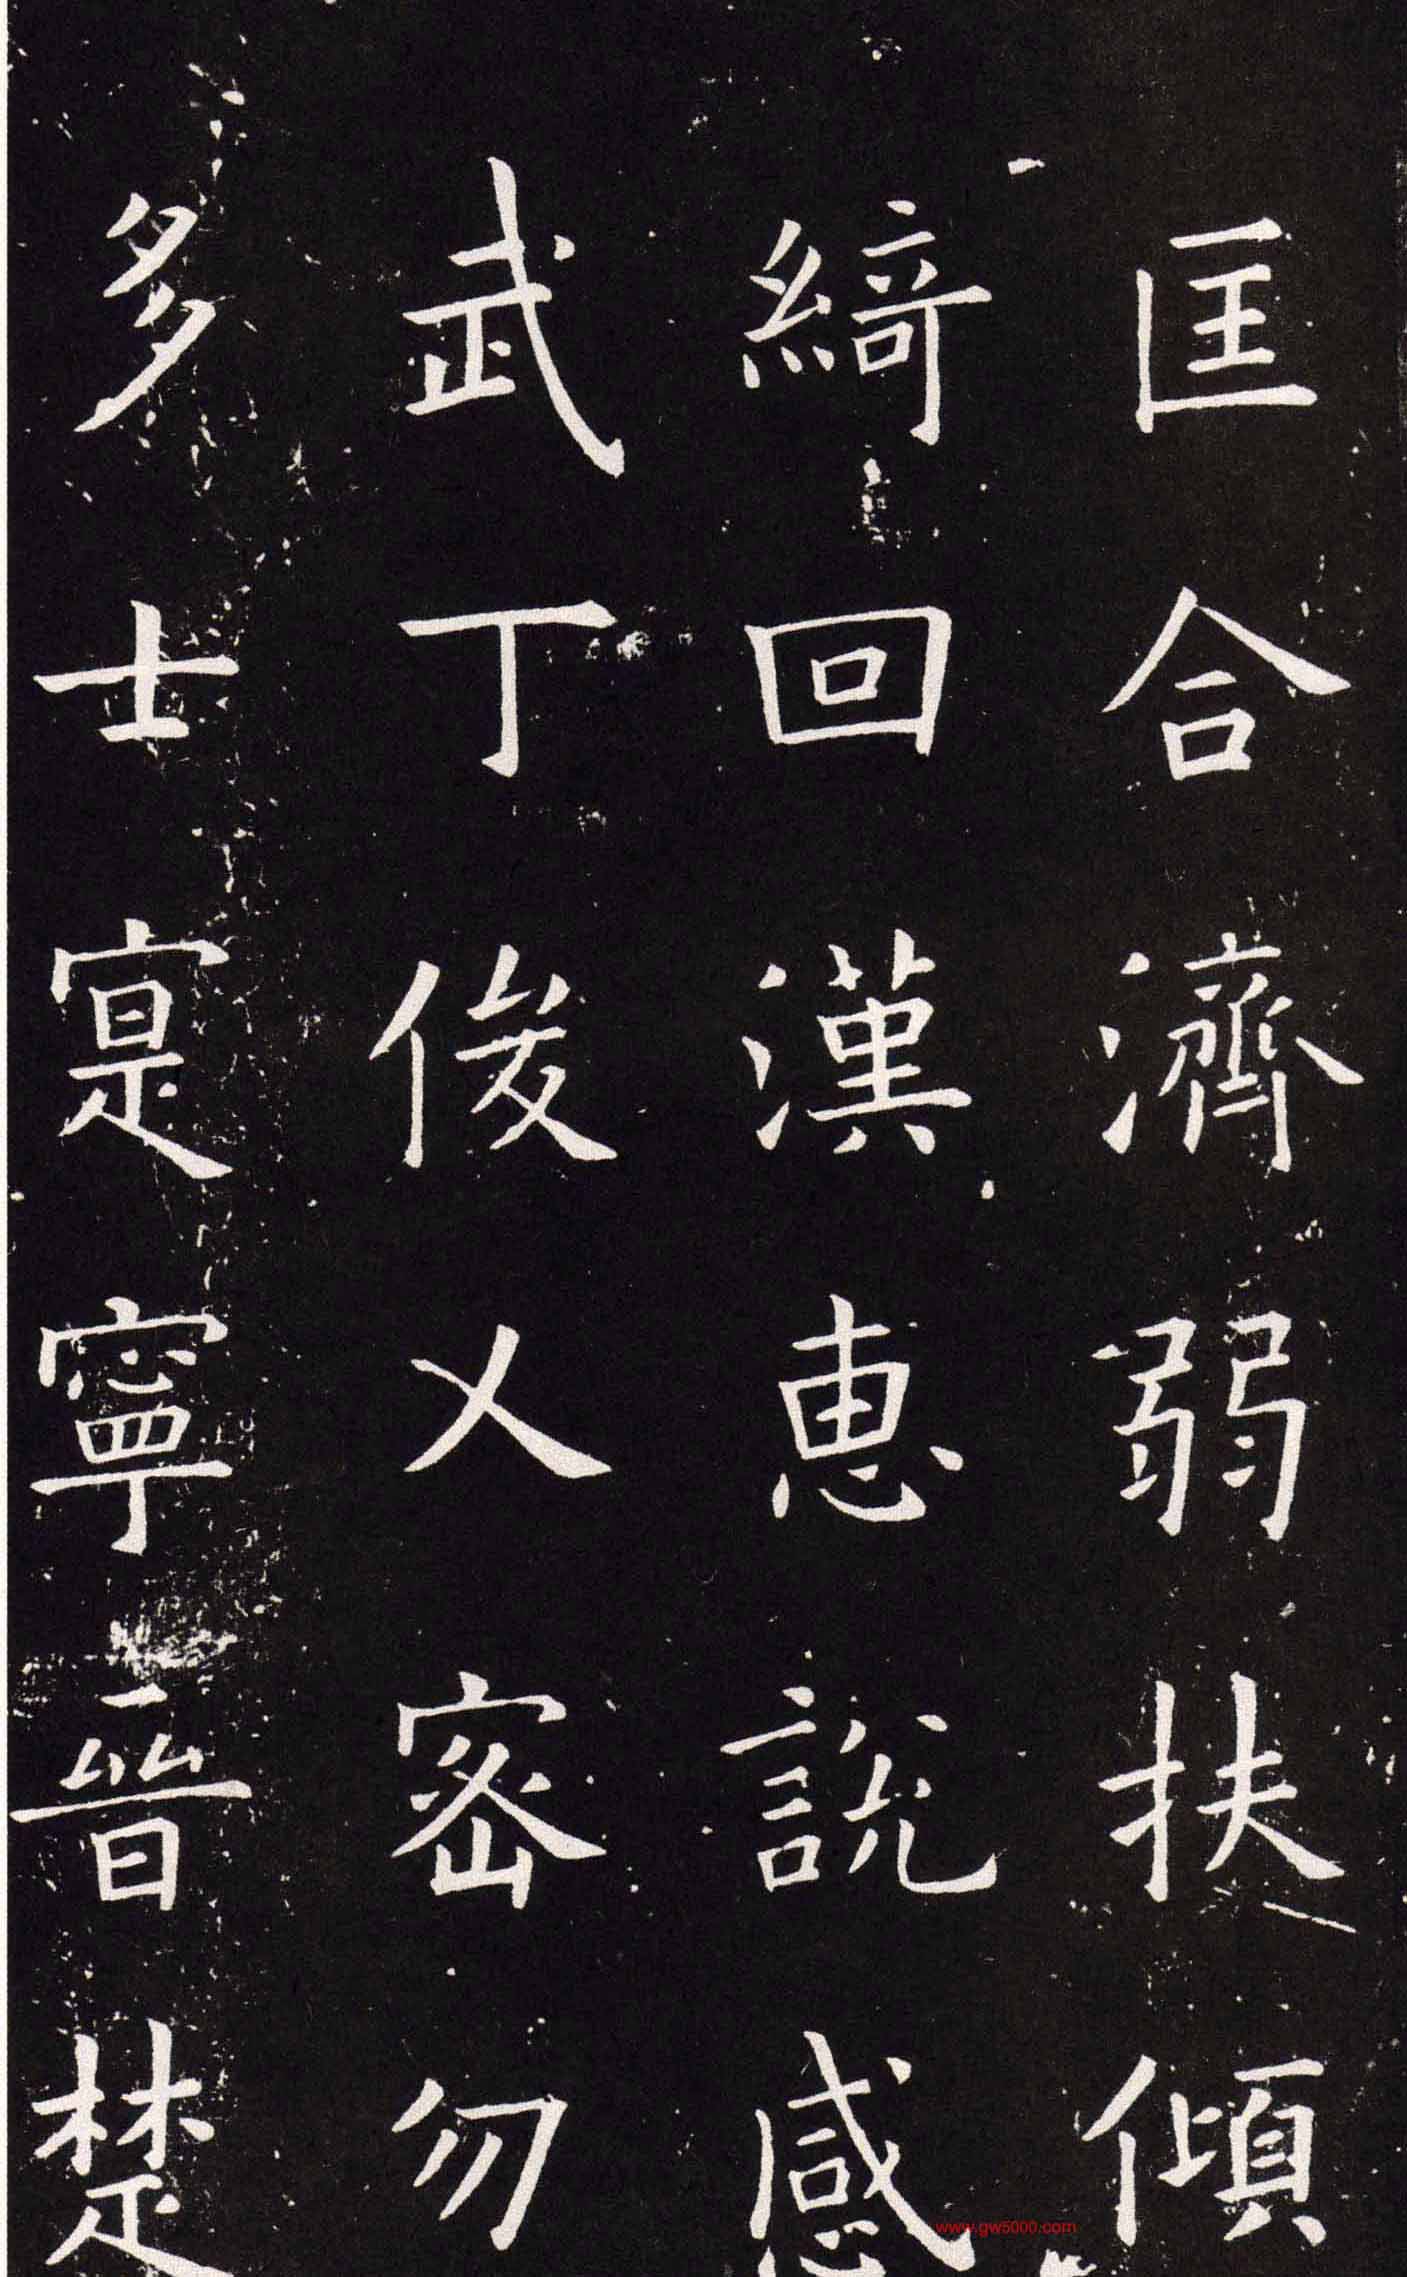 匡合濟弱扶傾
綺回漢惠說感
武丁俊乂密勿
多士寔寧晉楚
www.gw5000.com